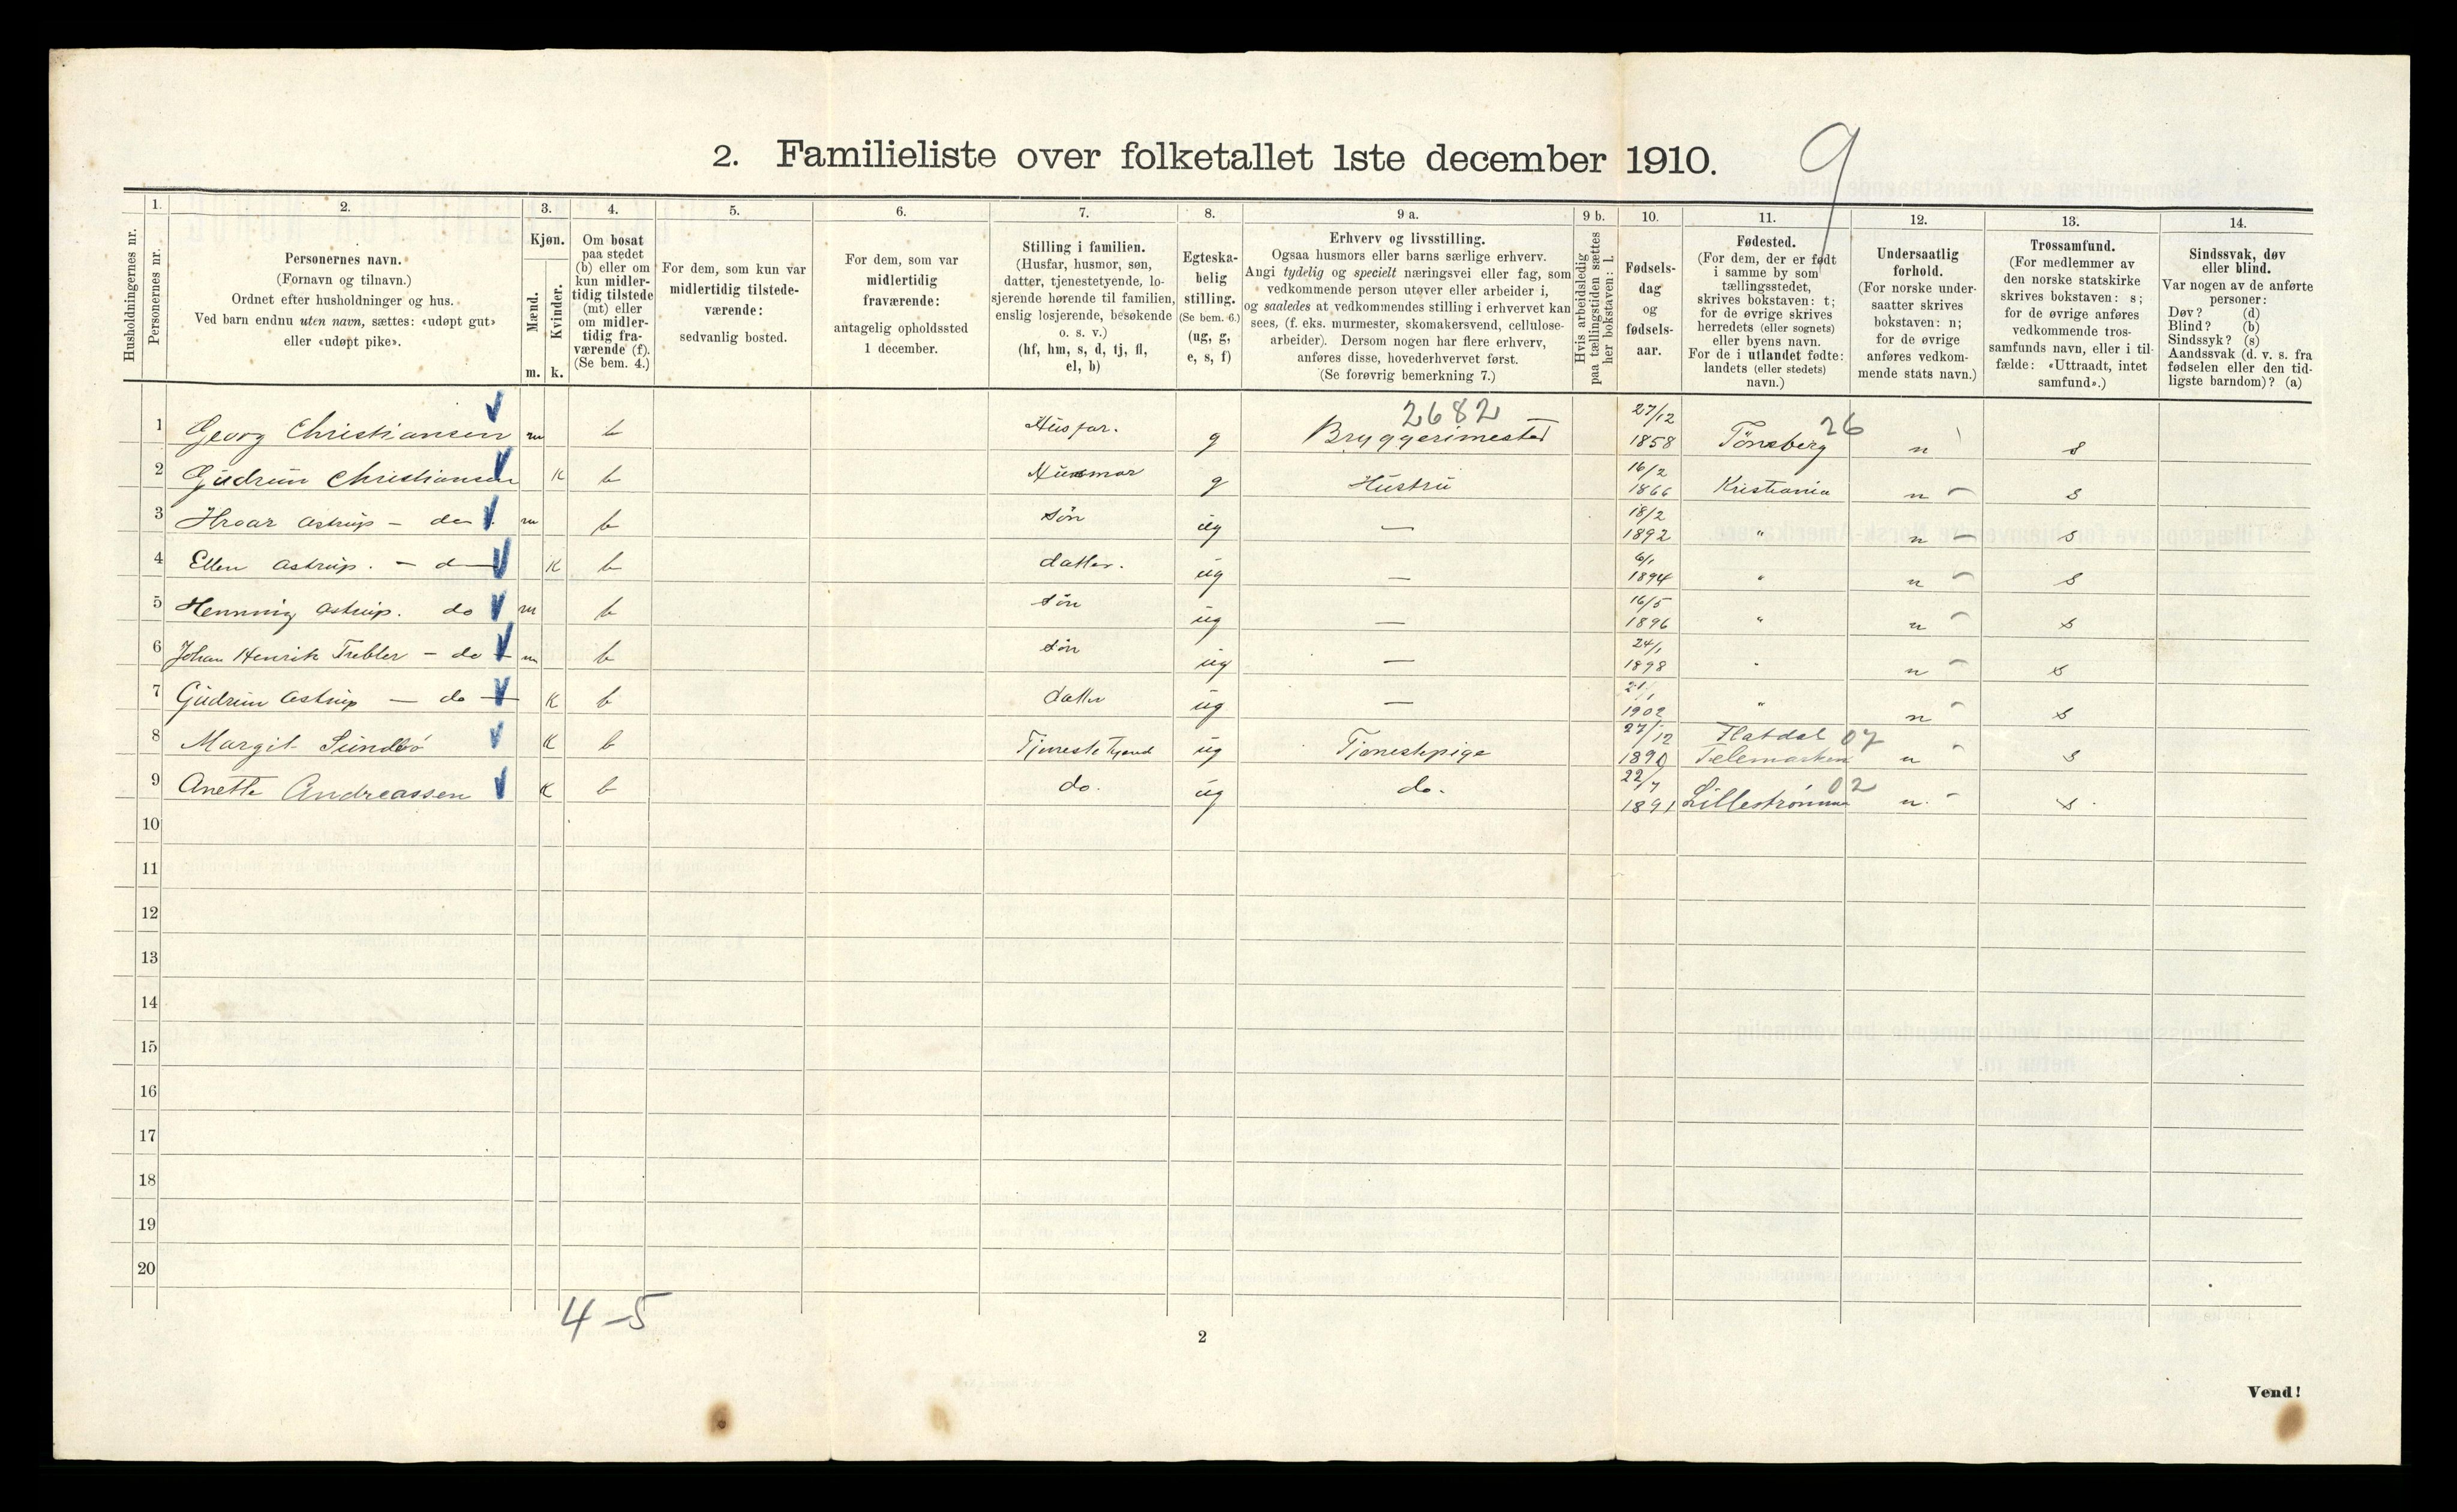 2. Familieliste over folketallet 1ste december 1910. 9
Husholdningernes nr.
1.
Personernes nr.
2.
Personernes navn.
(Fornavn og tilnavn.)
Ordnet efter husholdninger og hus.
Ved barn endnu uten navn, sættes: «udøpt gut»
eller «udøpt pike».
3.
Kjøn.
Mænd.
Kvinder.
m. k.
4.
Om bosat
paa stedet
(b) eller om
kun midler-
tidig tilstede
(mt) eller
om midler-
tidig fra-
værende (f).
(Se bem. 4.)
5.
For dem, som kun var
midlertidig tilstede-
værende:
sedvanlig bosted.
6.
For dem, som var
midlertidig
fraværende:
antagelig opholdssted
1 december.
7.
Stilling i familien.
(Husfar, husmor, søn,
datter, tjenestetyende, lo-
sjerende hørende til familien,
enslig losjerende, besøkende
o. s. v.)
(hf, hm, s, d, tj, fl,
el, b)
8.
Egteska-
belig
stilling.
(Se bem. 6.)
(ug, g,
e, s, f)
9 a.
Erhverv og livsstilling.
Ogsaa husmors eller barns særlige erhverv.
Angi tydelig og specielt næringsvei eller fag, som
vedkommende person utøver eller arbeider i,
og saaledes at vedkommendes stilling i erhvervet kan
sees, (f. eks. murmester, skomakersvend, cellulose-
arbeider). Dersom nogen har flere erhverv,
anføres disse, hovederhvervet først.
(Se forøvrig bemerkning 7.)
9 b.
Hvis arbeidsledig
paa tællingstiden sættes
her bokstaven: l.
10.
Fødsels-
dag
og
fødsels-
aar.
11.
Fødested.
(For dem, der er født
i samme by som
tællingsstedet,
skrives bokstaven: t;
for de øvrige skrives
herredets (eller sognets)
eller byens navn.
For de i utlandet fødte:
landets (eller stedets)
navn.)
12.
Undersaatlig
forhold.
(For norske under-
saatter skrives
bokstaven: n;
for de øvrige
anføres vedkom-
mende stats navn.)
13.
Trossamfund.
(For medlemmer av
den norske statskirke
skrives bokstaven: s;
for de øvrige anføres
vedkommende tros-
samfunds navn, eller i til-
fælde: «Uttraadt, intet
samfund».)
14.
Sindssvak, døv
eller blind.
Var nogen av de anførte
personer:
Døv? (d)
Blind? (b)
Sindssyk? (s)
Aandssvak (d. v. s. fra
fødselen eller den tid-
ligste barndom)? (a)
2682 27/12 26
1 Georg Christiansen m b Husfar. g Bryggerimester 1858 Tönsberg n s
16/2
2 Gudrun Christiansen K b Husmor g Hustru 1866 Kristiania n – s
18/2
3 Hroar Astrup – do m b sön ug — 1892 " n – s
6/1
4 Ellen Astrup. – d K b datter. ug — 1894 " n – s
16/5
5 Henning Astrup. do m b sön ug — 1896 " n – s
24/1
6 Johan Henrik Trebler – do m b sön ug — 1898 " n – s
21/1
7 Gudrun Astrup — do K b datter ug — 1902 " n – s
27/12 Flatdal 07
8 Margit Sundbö K b Tjeneste Tyend ug Tjenestepige 1890 Telemarken n – s
22/7 02
9 Anette Andreassen K b do. ug do. 1891 Lilleströmmen n. – s.
10
11
12
13
14
15
16
17
18
19
20
4–5
2
Vend!